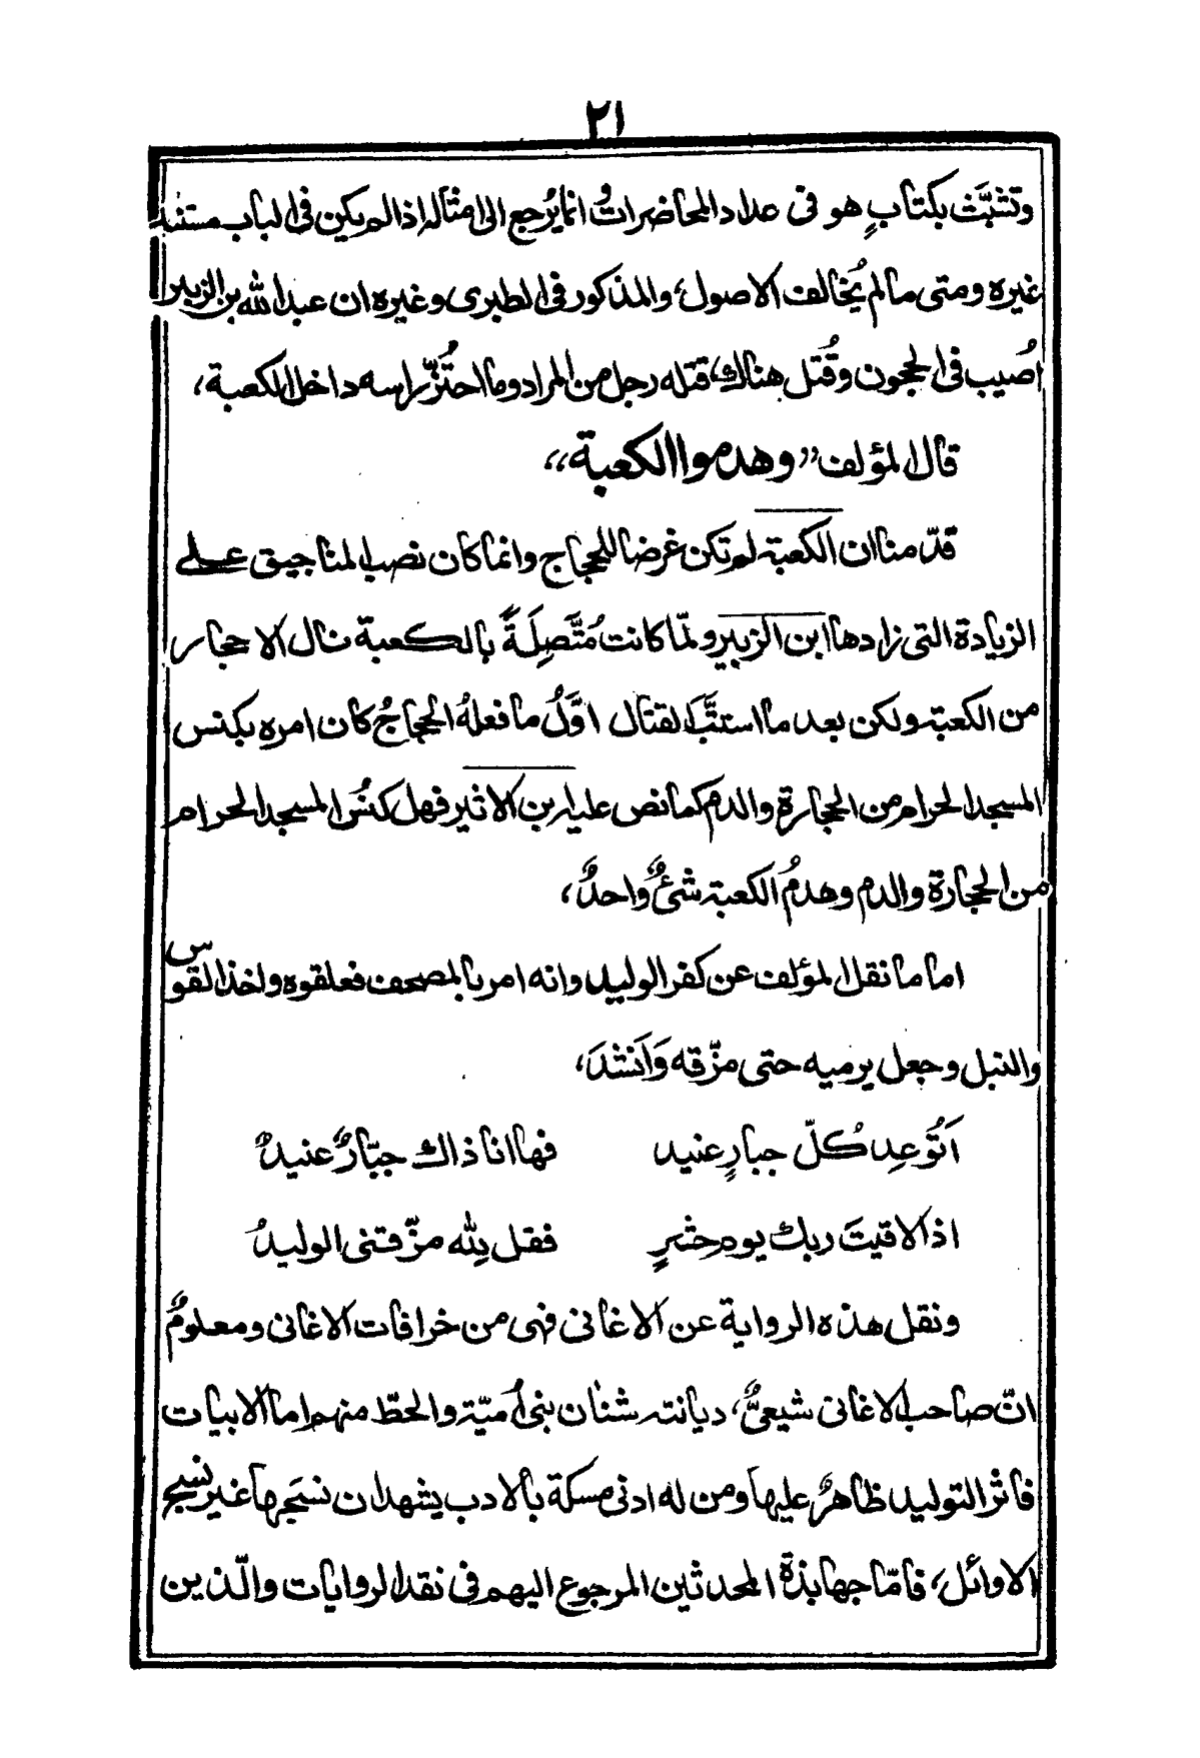 ٢١
وتتشبَّث بكتابٍ هو فى عداد المحاضرات وانما يُرجع الى امثاله اذا لم يكن فى الباب مستند
غيره ومتى ما لم يُخالف الاصول، والمذكور فى الطبرى وغيره ان عبد الله بن الزبير
اُصيب فى الحجون وقُتل هناك، قتله رجل من المراد وما احتُزّ راسه داخل الكعبة،
قال المؤلف ,,وهدموا الكعبة،،
قدّمنا ان الكعبة لم تكن غرضا للحجاج وانما كان نصب المناجيق على
الزيادة التى زادها ابن الزبير ولمّا كانت مُتَّصِلَةً بالكعبة نال الاحجار
من الكعبة ولكن بعد ما استتبَّ القتال اوَّلُ ما فعلهُ الحجاجُ كان امره بكنس
المسجد الحرام من الحجارة والدم كما نص عليه ابن الاثير فهل كنسُ المسجد الحرام
من الحجارة والدم وهدمُ الكعبة شئٌ واحدٌ،
اما ما نقل المؤلف عن كفر الوليد وانه امر بالمصحف فعلقوه واخذ القوس
والنبل وجعل يرميه حتى مزّقه وَاَنشدَ،
اَتُوعِد كُلّ جبارٍ عنيد فها انا ذاك جبّارٌ عنيدٌ
اذا لاقيتَ ربك يوم حشرٍ فقل لِله مزّقنى الوليدُ
ونقل هذه الرواية عن الاغانى فهى من خرافات الاغانى ومعلومٌ
انّ صاحب الاغانى شيعىٌّ، ديانته شنان بنى اُميّة والحطّ منهم اما الابيات
فاثر التوليد ظاهرٌ عليها ومن له ادنى مسكة بالادب يشهد ان نسجها غير نسج
الاوائل، فامّا جهابذة المحدثين المرجوع اليهم فى نقد الروايات والّذين